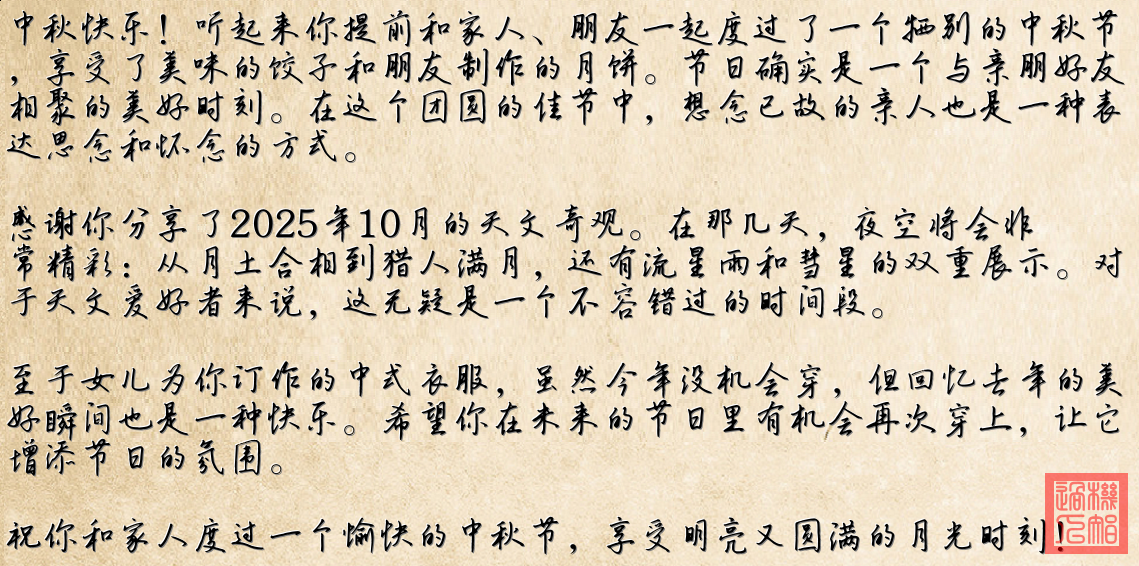 中秋快乐！听起来你提前和家人、朋友一起度过了一个特别的中秋节
，享受了美味的饺子和朋友制作的月饼。节日确实是一个与亲朋好友
相聚的美好时刻。在这个团圆的佳节中，想念已故的亲人也是一种表
达思念和怀念的方式。
感谢你分享了2025年10月的天文奇观。在那几天，夜空将会非
常精彩：从月土合相到猎人满月，还有流星雨和彗星的双重展示。对
于天文爱好者来说，这无疑是一个不容错过的时间段。
至于女儿为你订作的中式衣服，虽然今年没机会穿，但回忆去年的美
好瞬间也是一种快乐。希望你在未来的节日里有机会再次穿上，让它
增添节日的氛围。
祝你和家人度过一个愉快的中秋节，享受明亮又圆满的月光时刻！